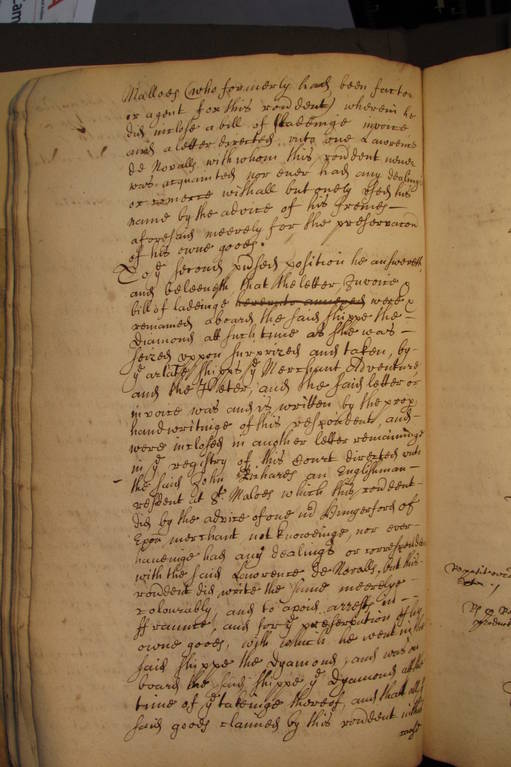 Malloes (who formerly had been factor
or agent for this rondent) wherein he
did inclose a bill of ladeinge invoice
and a letter directed unto one Lawrence
de Noralls with whom this rondent never
was acquainted nor ever had any dealings
or comerce withall but onely used his
name by the advice of his frends
aforesaid meerely for the preservacon
of his owne goods.
To ye second position he answereth
and beleeveth that the letter Invoice &
bill of ladeinge hereunto annexed were &
remained aboard the said shippe the
Diamond att such time as she was
seized uppon surprized and taken, by
ye arlate shipps ye Merchant Adventure
and the Peter, and the said letter or
invoice was and is written by the proper
hand writinge of this respondent, and
were inclosed in another letter remaininge
in ye registry of this Court directed unto
the said John an Englishman
resident at St Maloes which this rondent
did by the advice of one Hungerford of
Exon merchant not knoweinge, nor ever
haveinge had any dealings or correspondence
with the said Lawrence de Noralls, but this
rondent did write the same meerely
colourably, and to avoid arrests in
ffraunce, and for ye preservation of his
owne goods, with which he went in the
said shippe the Dyamond, and was on
board the said shippe ye Dyamond att the
time of ye takeinge thereof, and that all ye
said goods claimed by this rondent